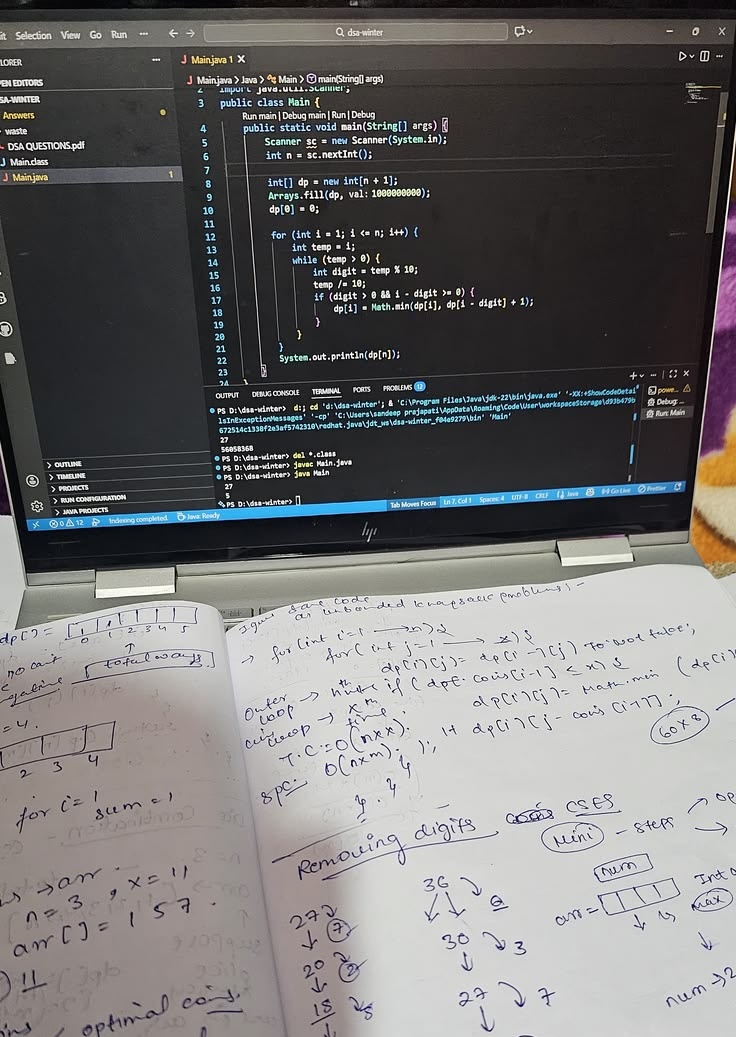 it Selection View Go Run ... dsa-winter
LORER
EN EDITORS
SA-WINTER
Answers
waste
DSA QUESTIONS.pdf
J Main.class
J Main.java 1
OUTLINE
TIMELINE
PROJECTS
RUN CONFIGURATION
JAVA PROJECTS
J Main.java 1 X
J Main.java > Java > Main > main(String[] args)
2 import java.util.Scanner;
3 public class Main {
Run main | Debug main | Run | Debug
4 public static void main(String[] args) {
5 Scanner sc = new Scanner(System.in);
6 int n = sc.nextInt();
7
8 int[] dp = new int[n + 1];
9 Arrays.fill(dp, val: 1000000000);
10 dp[0] = 0;
11
12 for (int i = 1; i <= n; i++) {
13 int temp = i;
14 while (temp > 0) {
15 int digit = temp % 10;
16 temp /= 10;
17 if (digit > 0 && i - digit >= 0) {
18 dp[i] = Math.min(dp[i], dp[i - digit] + 1);
19 }
20 }
21 }
22 System.out.println(dp[n]);
23 }
24
OUTPUT DEBUG CONSOLE TERMINAL PORTS PROBLEMS 12
PS D:\dsa-winter> d:; cd 'd:\dsa-winter'; & 'C:\Program Files\Java\jdk-22\bin\java.exe' '-XX:+ShowCodeDetai
lsInExceptionMessages' '-cp' 'C:\Users\sandeep prajapati\AppData\Roaming\Code\User\workspaceStorage\d93b479b
672514c1338f2e3af5742310\redhat.java\jdt_ws\dsa-winter_f04e9279\bin' 'Main'
27
56058368
PS D:\dsa-winter> del *.class
PS D:\dsa-winter> javac Main.java
PS D:\dsa-winter> java Main
27
5
PS D:\dsa-winter>
powe...
Debug:...
Run: Main
0 12 Indexing completed. Java: Ready Tab Moves Focus Ln 7, Col 1 Spaces: 4 UTF-8 CRLF Java Go Live Prettier
hp
dp[] =
0 1 2 3 4 5
total ways
= 4.
2 3 4
for i=1
sum = 1
→ arr
n = 3, x = 11
arr[] = 1 5 7.
11
optimal coins
same code
as unbounded knapsack problems) -
→ for(int i=1 → n) {
for(int j=1 → x) {
dp[i][j] = dp[i-1][j] To Not take;
if (coins[i-1] ≤ x) {
dp[i][j] = Math.min (dp[i]
1+ dp[i][j - coins[i-1]];
Outer loop → nth
loop → xth time
T.C = O(n×x).
spc. O(n×m).
60×8
Removing digits CSES
Mini - steps
27
7
20
2
18
36
6
30 3
27 7
num
arr =
max
num → 2